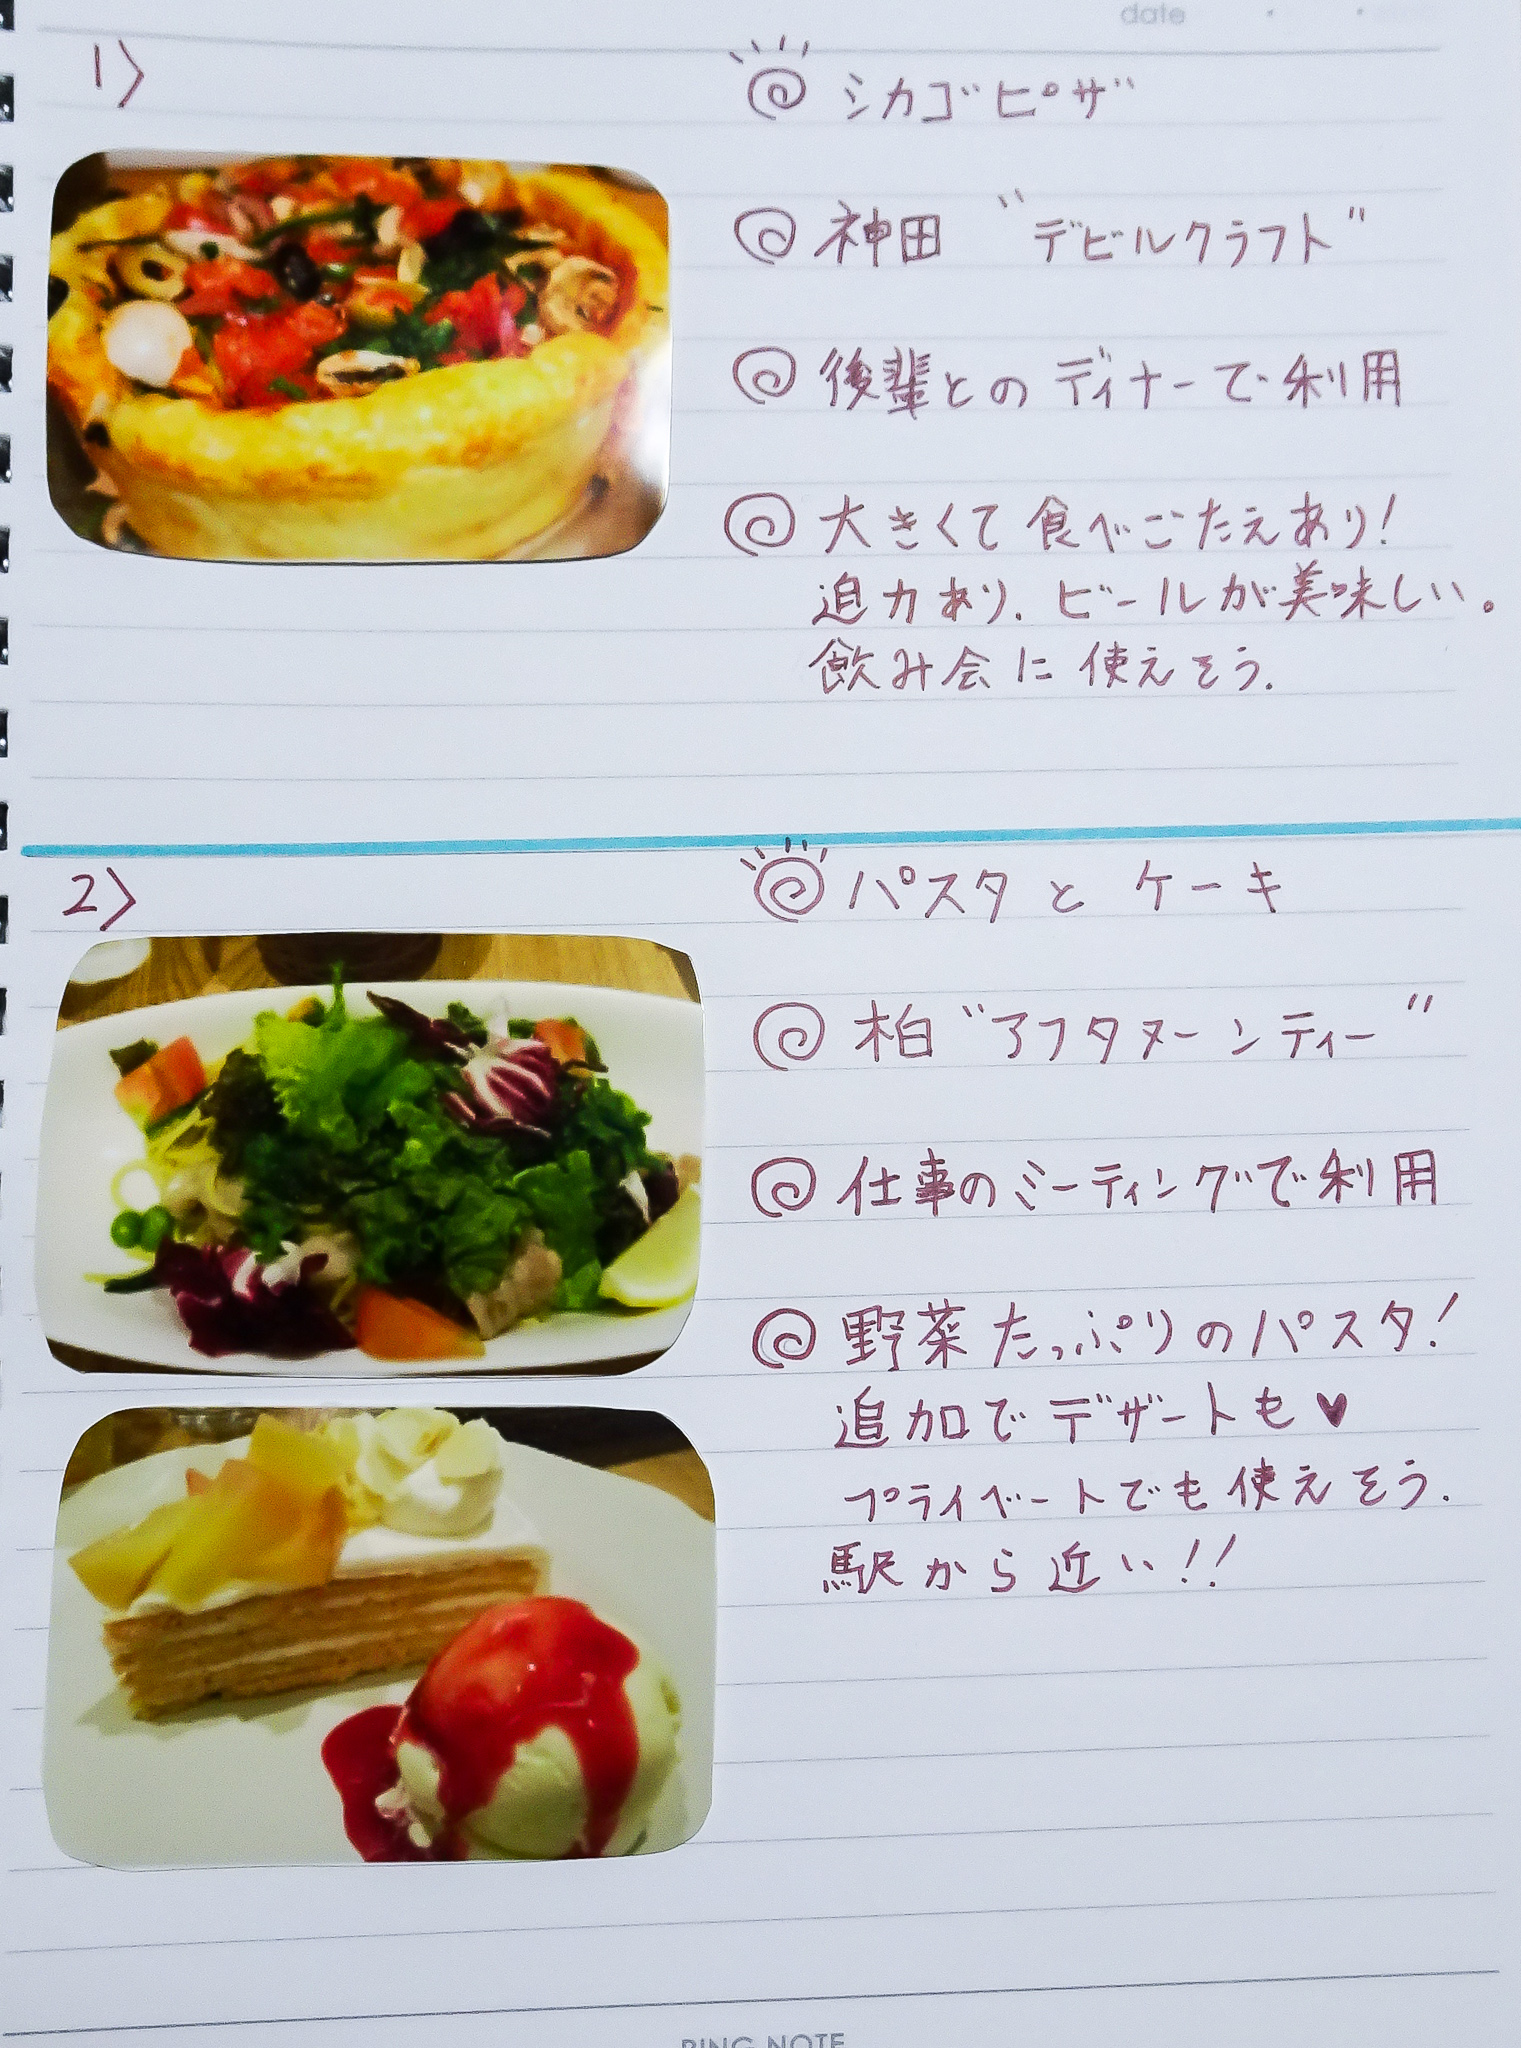 date
1>
シカゴピザ
神田 "デビルクラフト"
後輩とのディナーで利用
大きくて食べごたえあり!
迫力あり. ビールが美味しい。
飲み会に使えそう.
2>
パスタとケーキ
柏 "アフタヌーンティー"
仕事のミーティングで利用
野菜たっぷりのパスタ!
追加でデザートも♥
プライベートでも使えそう.
駅から近い!!
RING NOTE